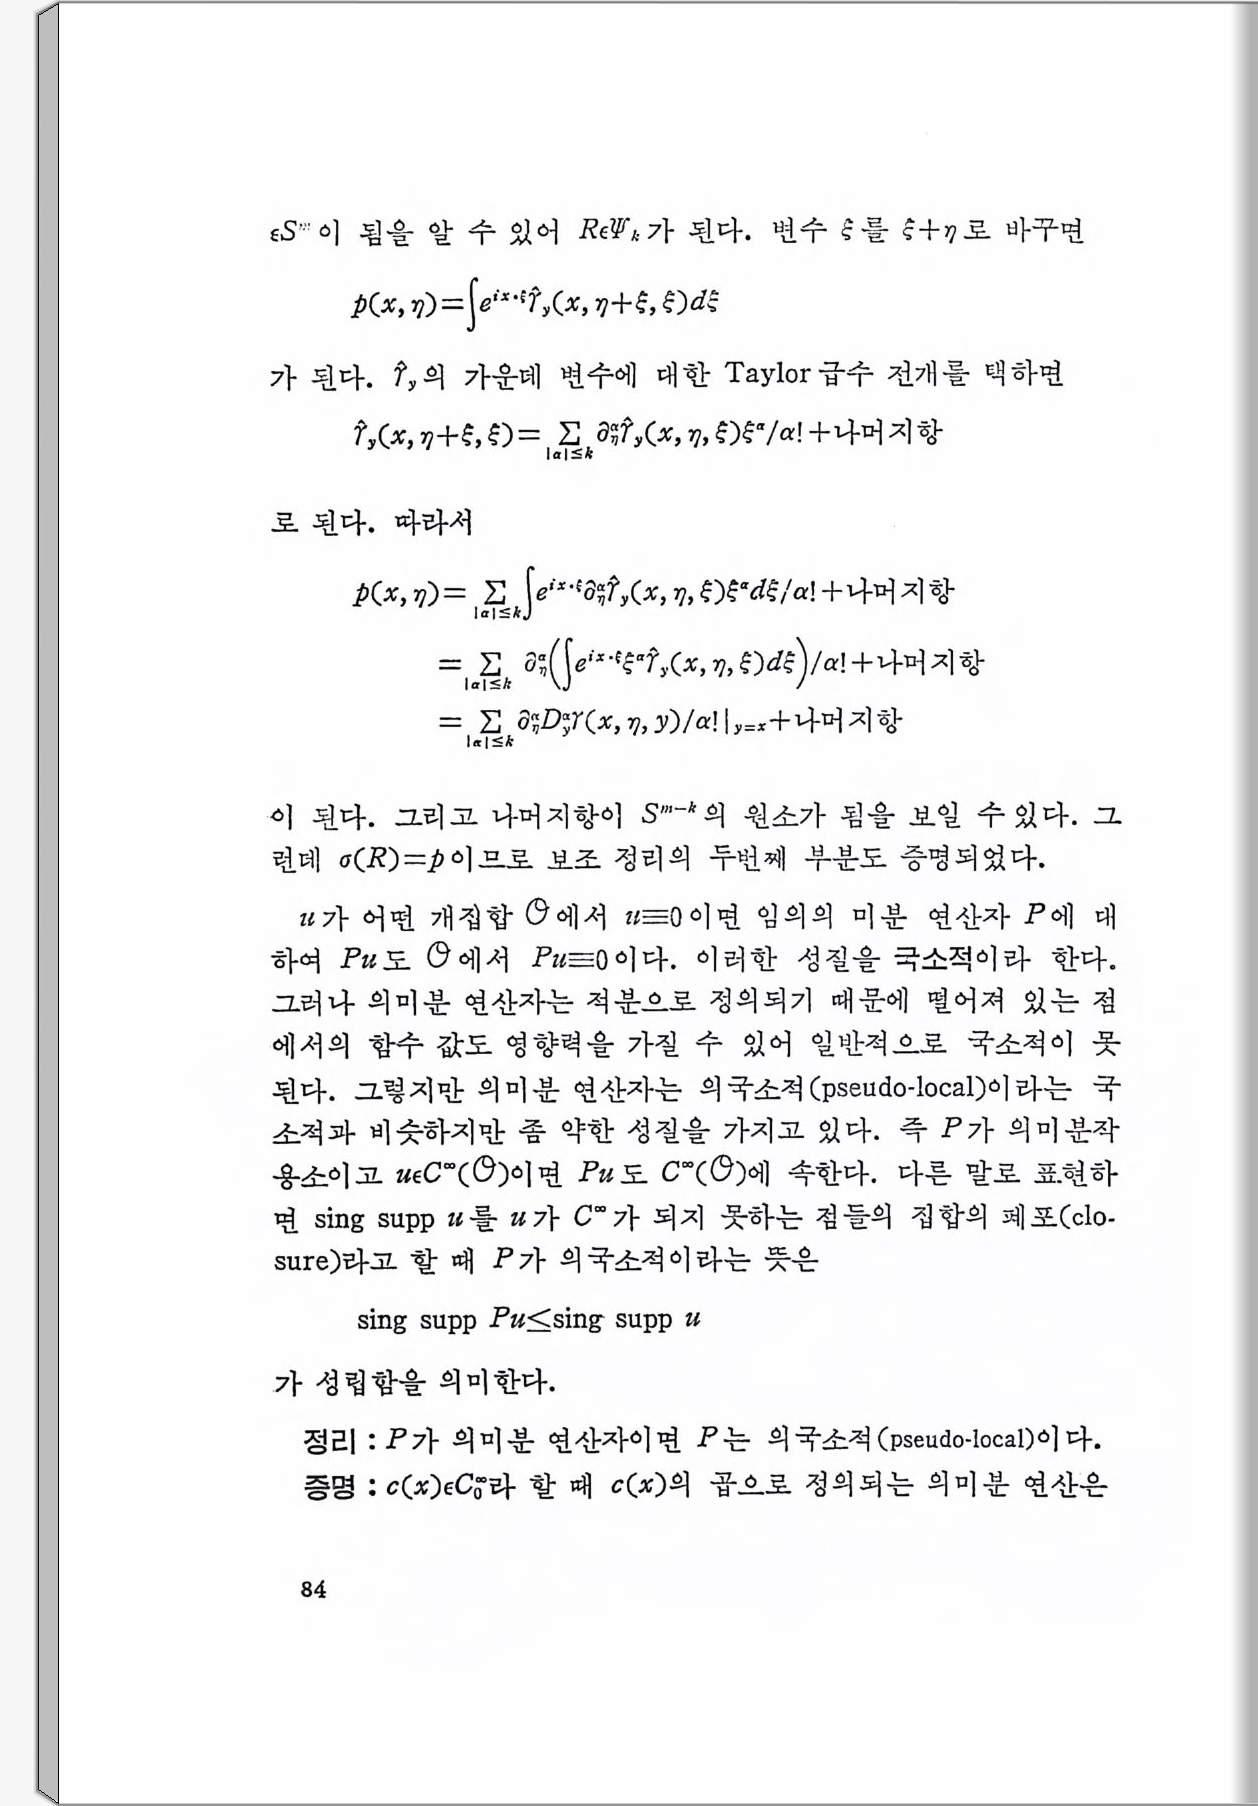 ϵSᵐ이 됨을 알 수 있어 RϵΨₖ가 된다. 변수 ξ를 ξ+η로 바꾸면
p(x, η)=∫e^{ix·ξ}r̂_y(x, η+ξ, ξ)dξ
가 된다. r̂_y의 가운데 변수에 대한 Taylor급수 전개를 택하면
r̂_y(x, η+ξ, ξ)= ∑_{|α|≤k} ∂_η^α r̂_y(x, η, ξ)ξ^α/α!+나머지항
로 된다. 따라서
p(x, η)= ∑_{|α|≤k} ∫e^{ix·ξ}∂_η^α r̂_y(x, η, ξ)ξ^α dξ/α!+나머지항
= ∑_{|α|≤k} ∂_η^α(∫e^{ix·ξ}ξ^α r̂_y(x, η, ξ)dξ)/α!+나머지항
= ∑_{|α|≤k} ∂_η^α D_y^α r(x, η, y)/α!|_{y=x}+나머지항
이 된다. 그리고 나머지항이 S^{m-k}의 원소가 됨을 보일 수 있다. 그
런데 σ(R)=p이므로 보조 정리의 두번째 부분도 증명되었다.
u가 어떤 개집합 𝒪에서 u≡0이면 임의의 미분 연산자 P에 대
하여 Pu도 𝒪에서 Pu≡0이다. 이러한 성질을 국소적이라 한다.
그러나 의미분 연산자는 적분으로 정의되기 때문에 떨어져 있는 점
에서의 함수 값도 영향력을 가질 수 있어 일반적으로 국소적이 못
된다. 그렇지만 의미분 연산자는 의국소적(pseudo-local)이라는 국
소적과 비슷하지만 좀 약한 성질을 가지고 있다. 즉 P가 의미분작
용소이고 uϵC^∞(𝒪)이면 Pu도 C^∞(𝒪)에 속한다. 다른 말로 표현하
면 sing supp u를 u가 C^∞가 되지 못하는 점들의 집합의 폐포(clo-
sure)라고 할 때 P가 의국소적이라는 뜻은
sing supp Pu≤sing supp u
가 성립함을 의미한다.
정리 : P가 의미분 연산자이면 P는 의국소적(pseudo-local)이다.
증명 : c(x)ϵC_0^∞라 할 때 c(x)의 곱으로 정의되는 의미분 연산은
84